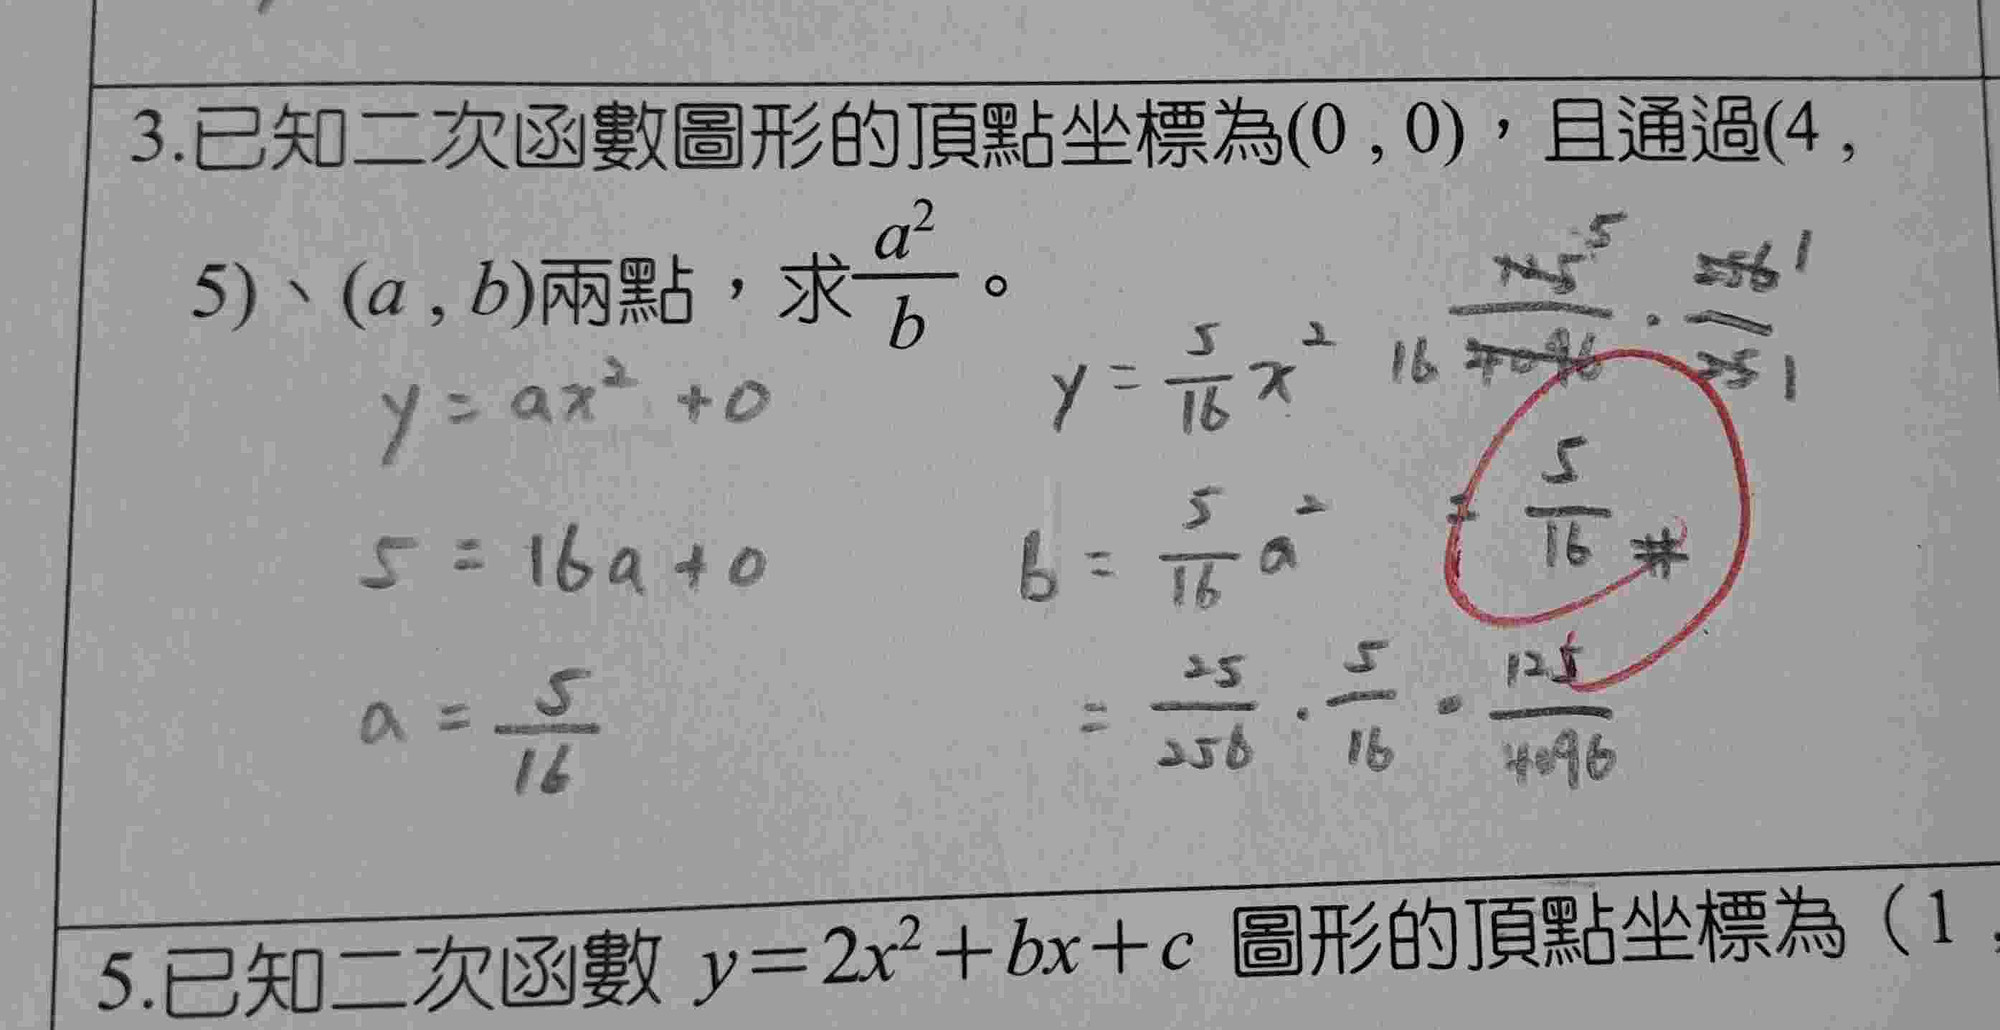 3.已知二次函數圖形的頂點坐標為(0 , 0)，且通過(4 ,
5)、(a , b)兩點，求a²/b。
y = ax² + 0
5 = 16a + 0
a = 5/16
y = 5/16 x²
b = 5/16 a²
= 25/256 · 5/16 = 125/4096
16 125/4096 5 · 256/25 1 1
= 5/16 #
5.已知二次函數 y=2x²+bx+c 圖形的頂點坐標為（1 ,